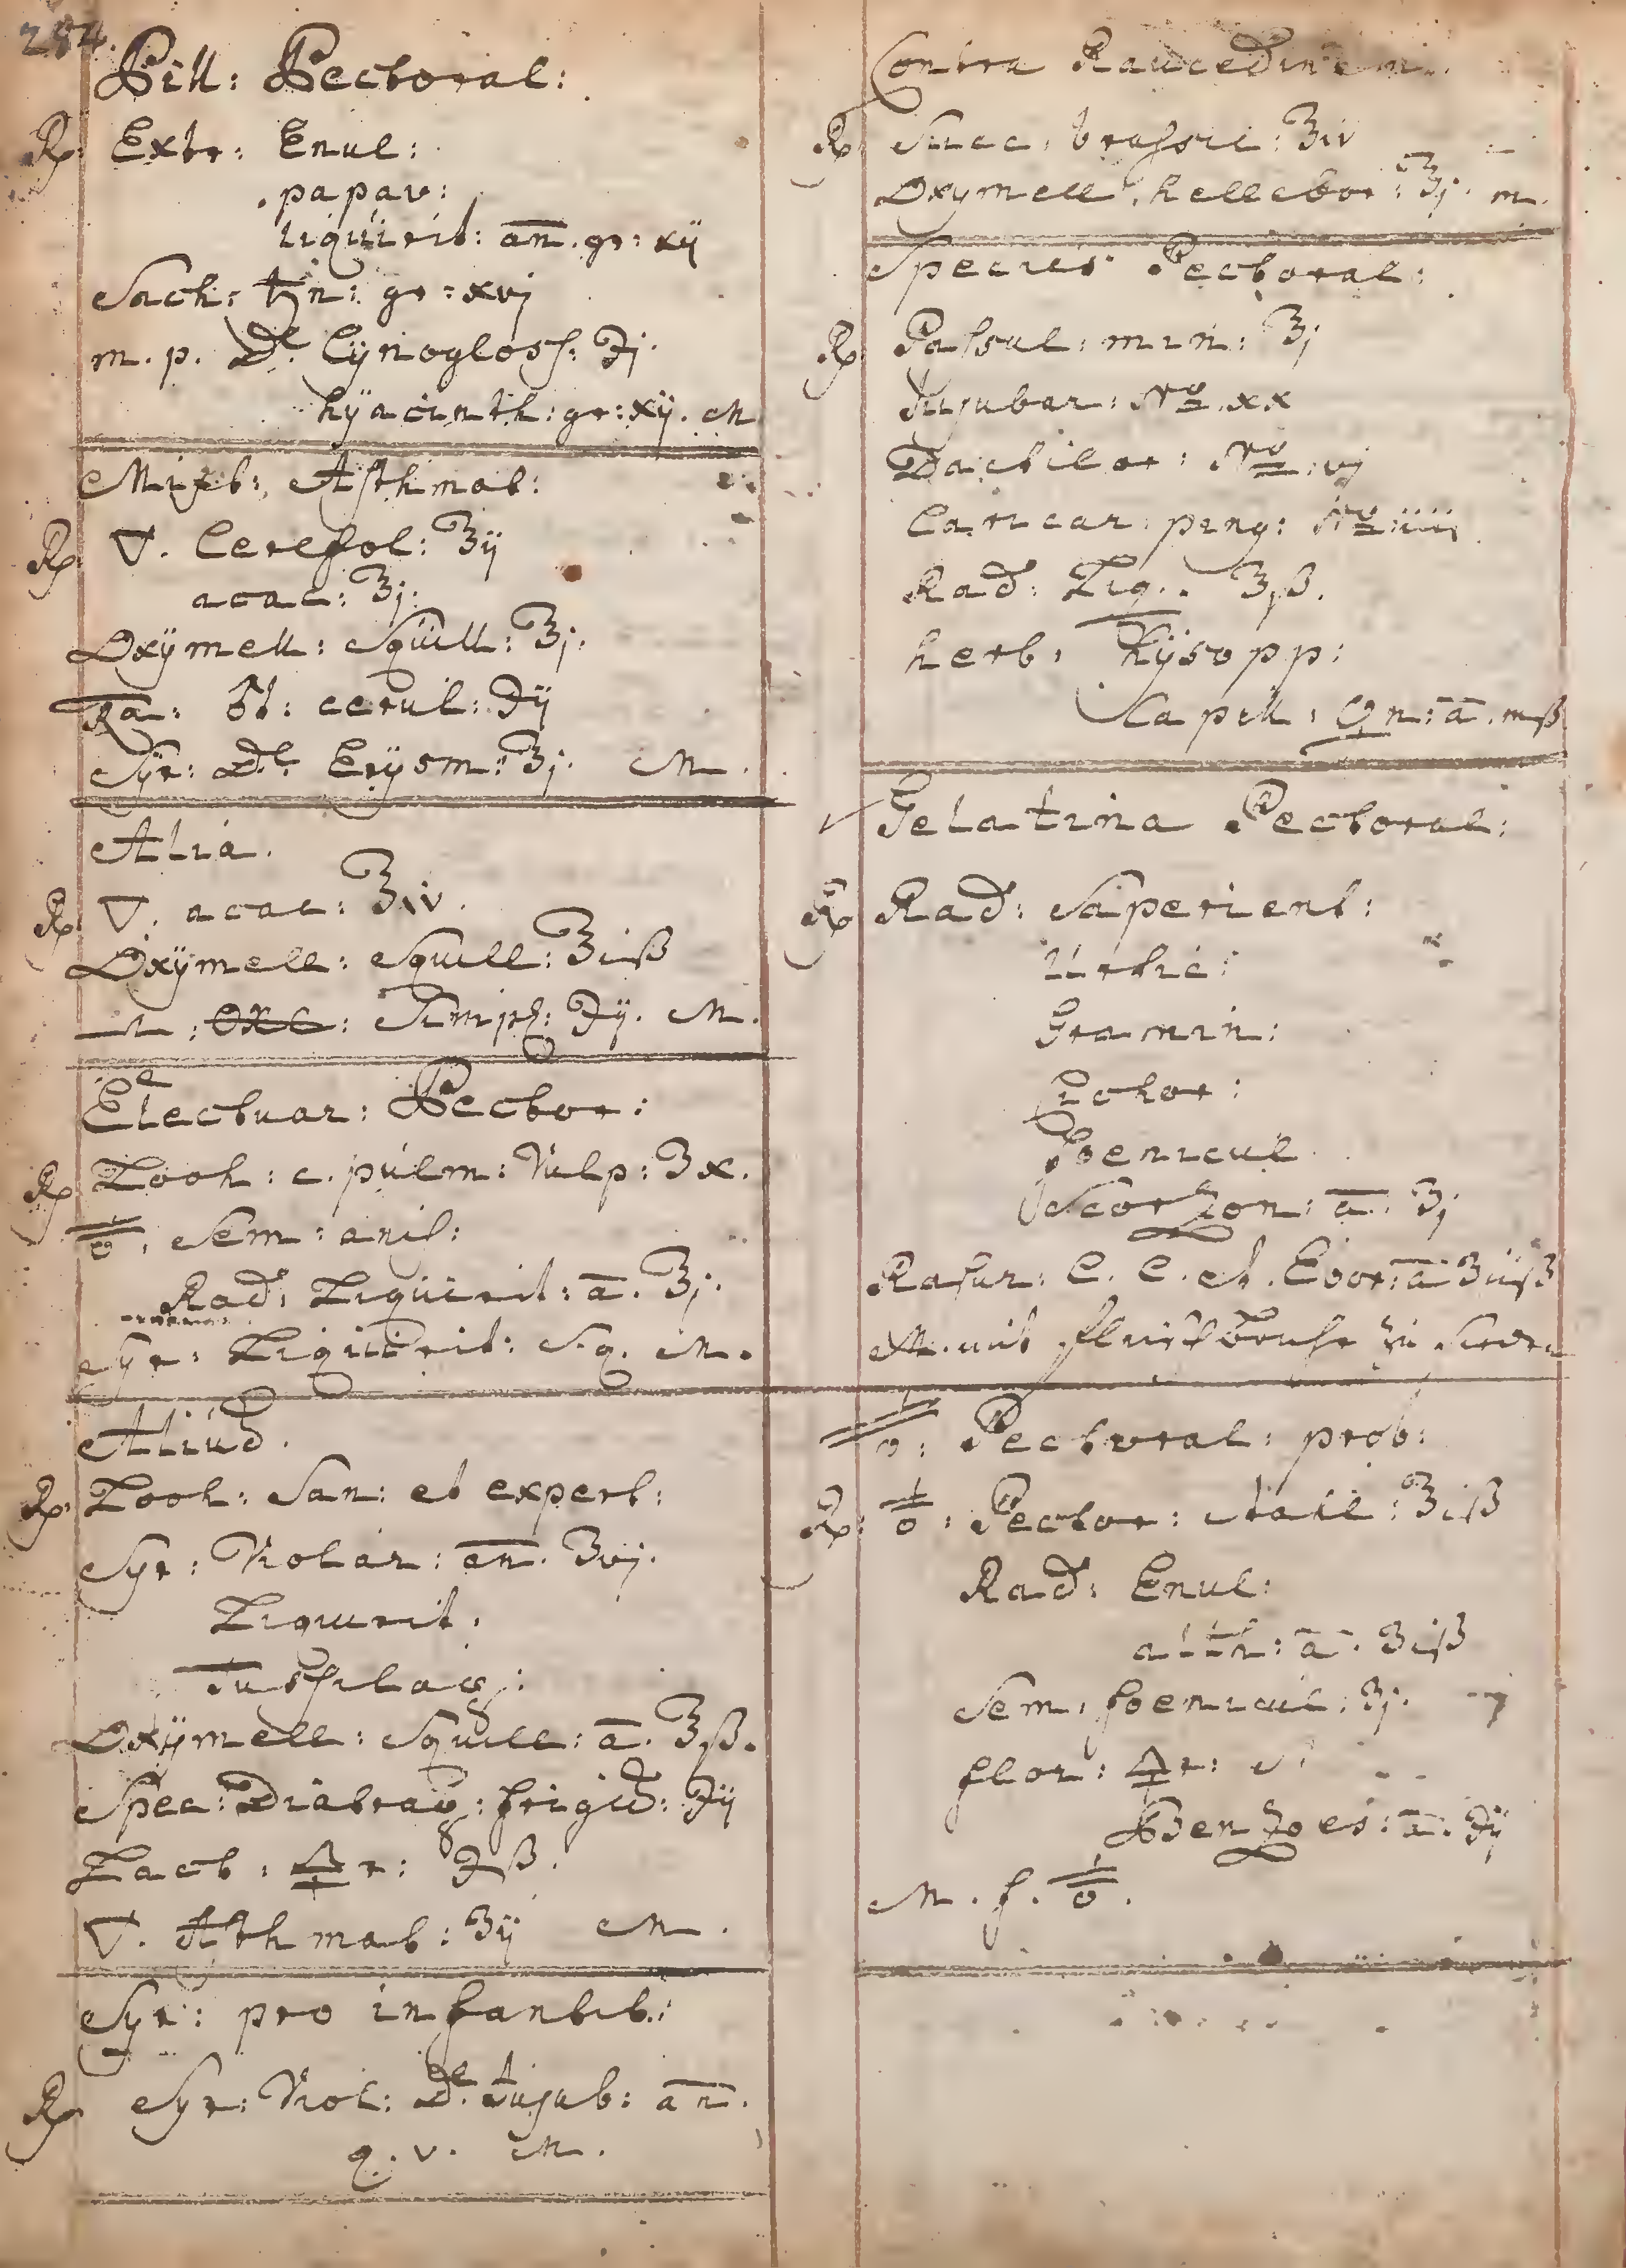 284.
Pill: Pectoral:
℞ Extr: Enul:
papav:
liquirit: an. gr: xij
Sach: ♄n: gr: xvj
m. p. de Cÿnogloss: ℈j.
hÿacinth: gr: xÿ. M
Mixt: Asthmat:
℞ ▽. Cerefol: ℥ij
acac: ℥j.
Oxÿmell: Squill: ℥j.
cerul: ℈ij
Sÿr: de Erÿsm: ℥j. M.
Alia.
℞ ▽. acac: ℥iv.
Oxÿmell: Squill: ℥iß
Simpl: ℈ij. M.
Electuar: Pector:
℞ Looh: c. pulm: Vulp: ℥x.
Sem: anis:
Rad: Liquirit: a. ℥j.
Syr: Liquirit: S. q. M.
Aliud.
℞ Looh: San: et expert:
Syr: Violar: an. ʒvj.
Liquirit:
Tussilag:
Oxÿmell: Squill: a. ℥ß.
Spec: Diatrag: frigid: ℈ij
Lact: 🜍r: ℈ß.
▽. Asthmat: ℥ij M.
Syr: pro infantib:
℞ Syr: Viol: de Jujub: an.
q. v. M.
Contra Raucedinem.
℞ Succ: brassic: ℥iv
Oxymell: hellebor: ℥j. m.
Species Pectoral:
℞ Passul: min: ℥j
Jujubar: No. xx
Dactilor: No: vj
Caricar: ping: No: iiii
Rad: Liq: ℥ß.
herb: hÿsopp:
Capill: ♀n: a. mß
Gelatina Pectoral:
℞ Rad: Saperient:
Urtic:
Gramin:
Cichor:
Foenicul
Scorzon: a. ℥j
Rasur: C. C. et. Ebor: a ℥iiß
M. mit
Pectoral: prob:
℞ Pector: ℥iß
Rad: Enul:
alth: a. ʒiß
Sem: foenicul: ʒj.
flor: 🜍r: S
Benzoes: a. ℈ij
M. f.